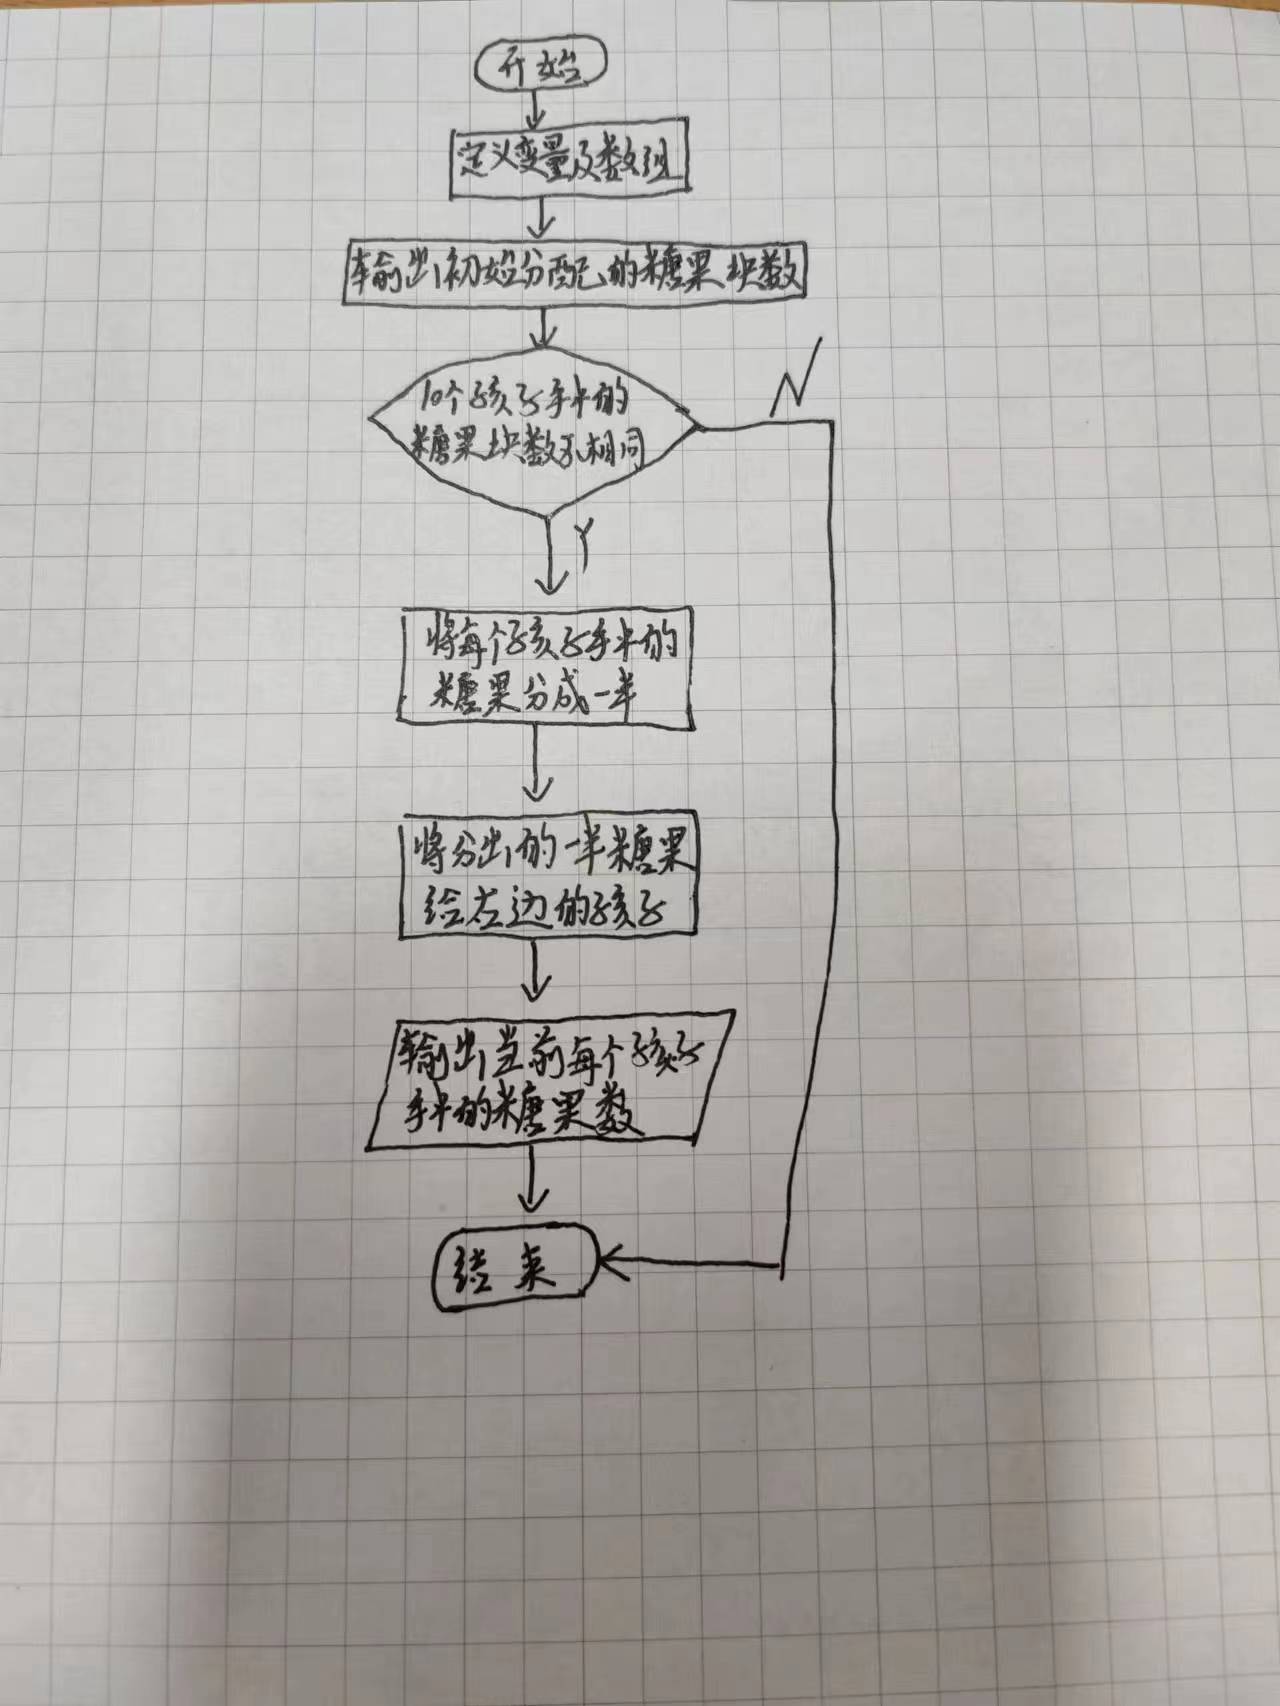 开始
定义变量及数组
输出初始分配的糖果块数
10个孩子手中的
糖果块数不相同
N
Y
将每个孩子手中的
糖果分成一半
将分出的一半糖果
给左边的孩子
输出当前每个孩子
手中的糖果数
结束